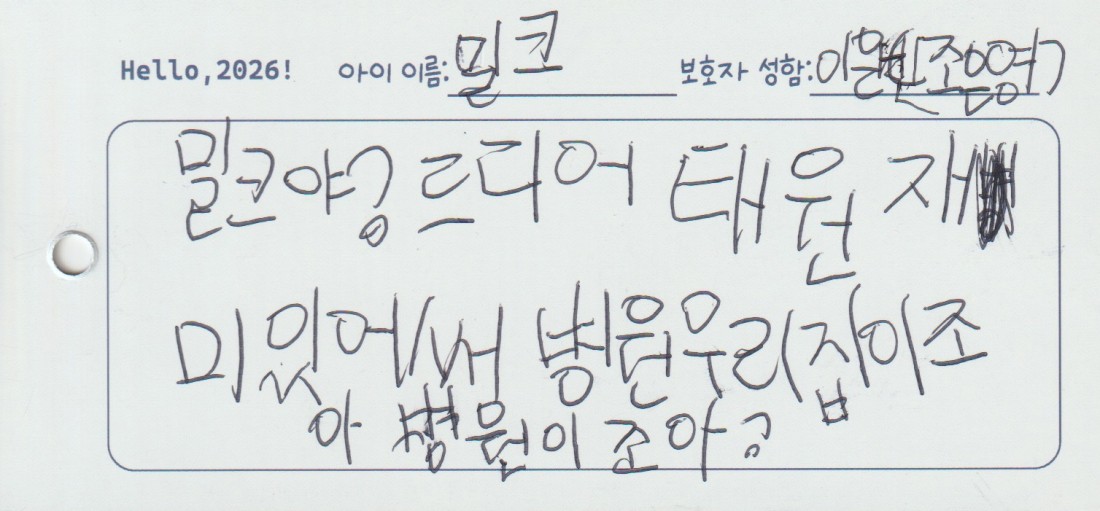 Hello,2026! 아이 이름: 밀크 보호자 성함: 이원 조은영
밀크야 드디어 태원 재
미있어써 병원 우리집이 조
아 병원이 조아?